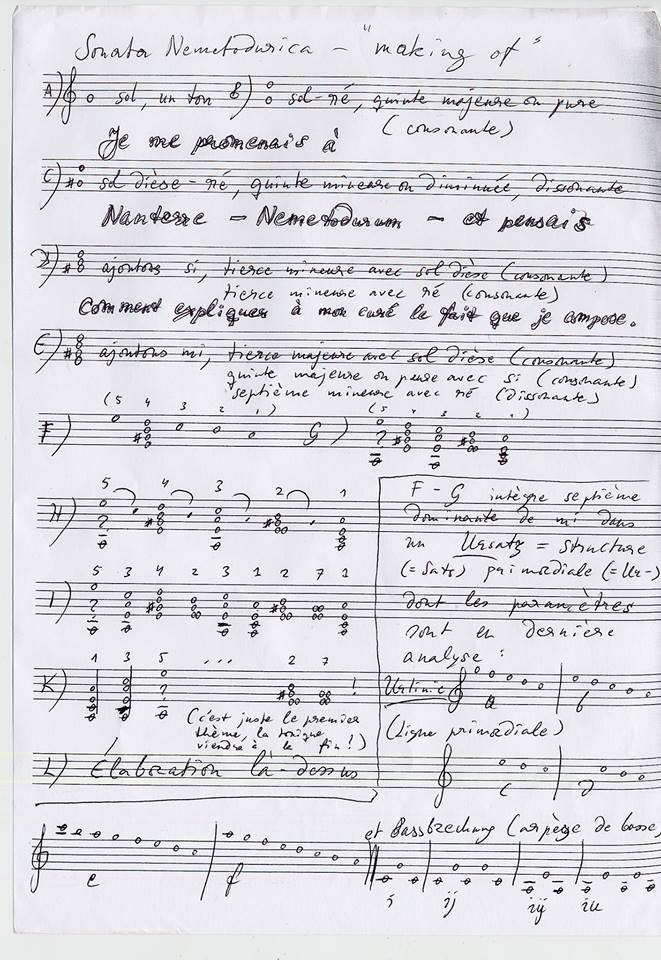 Sonata Nemetodurica - "making of"
A) sol, un ton B) sol-ré, quinte majeure ou pure
(consonante)
Je me promenais à
C) sol dièse-ré, quinte mineure ou diminuée, dissonante
Nanterre - Nemetodurum - et pensais
D) ajoutons si, tierce mineure avec sol dièse (consonante)
tierce mineure avec ré (consonante)
Comment expliquer à mon curé le fait que je compose.
E) ajoutons mi, tierce majeure avec sol dièse (consonante)
quinte majeure ou pure avec si (consonante)
septième mineure avec ré (dissonante)
F) (5 4 3 2 1) G) (5 4 3 2 1)
H) 5 4 3 2 1
I) 5 3 4 2 3 1 2 7 1
K) 1 3 5 ... 2 7 !
(c'est juste le premier
thème, la tonique
viendra à la fin!)
L) Élaboration là-dessus
F-G intègre septième
dominante de mi dans
un Ursatz = structure
(=Satz) primordiale (=Ur-)
dont les paramètres
sont en dernière
analyse:
Urlinie a b
(Ligne primordiale)
c d
et Bassbrechung (arpège de basse,
e f i ij iij iu